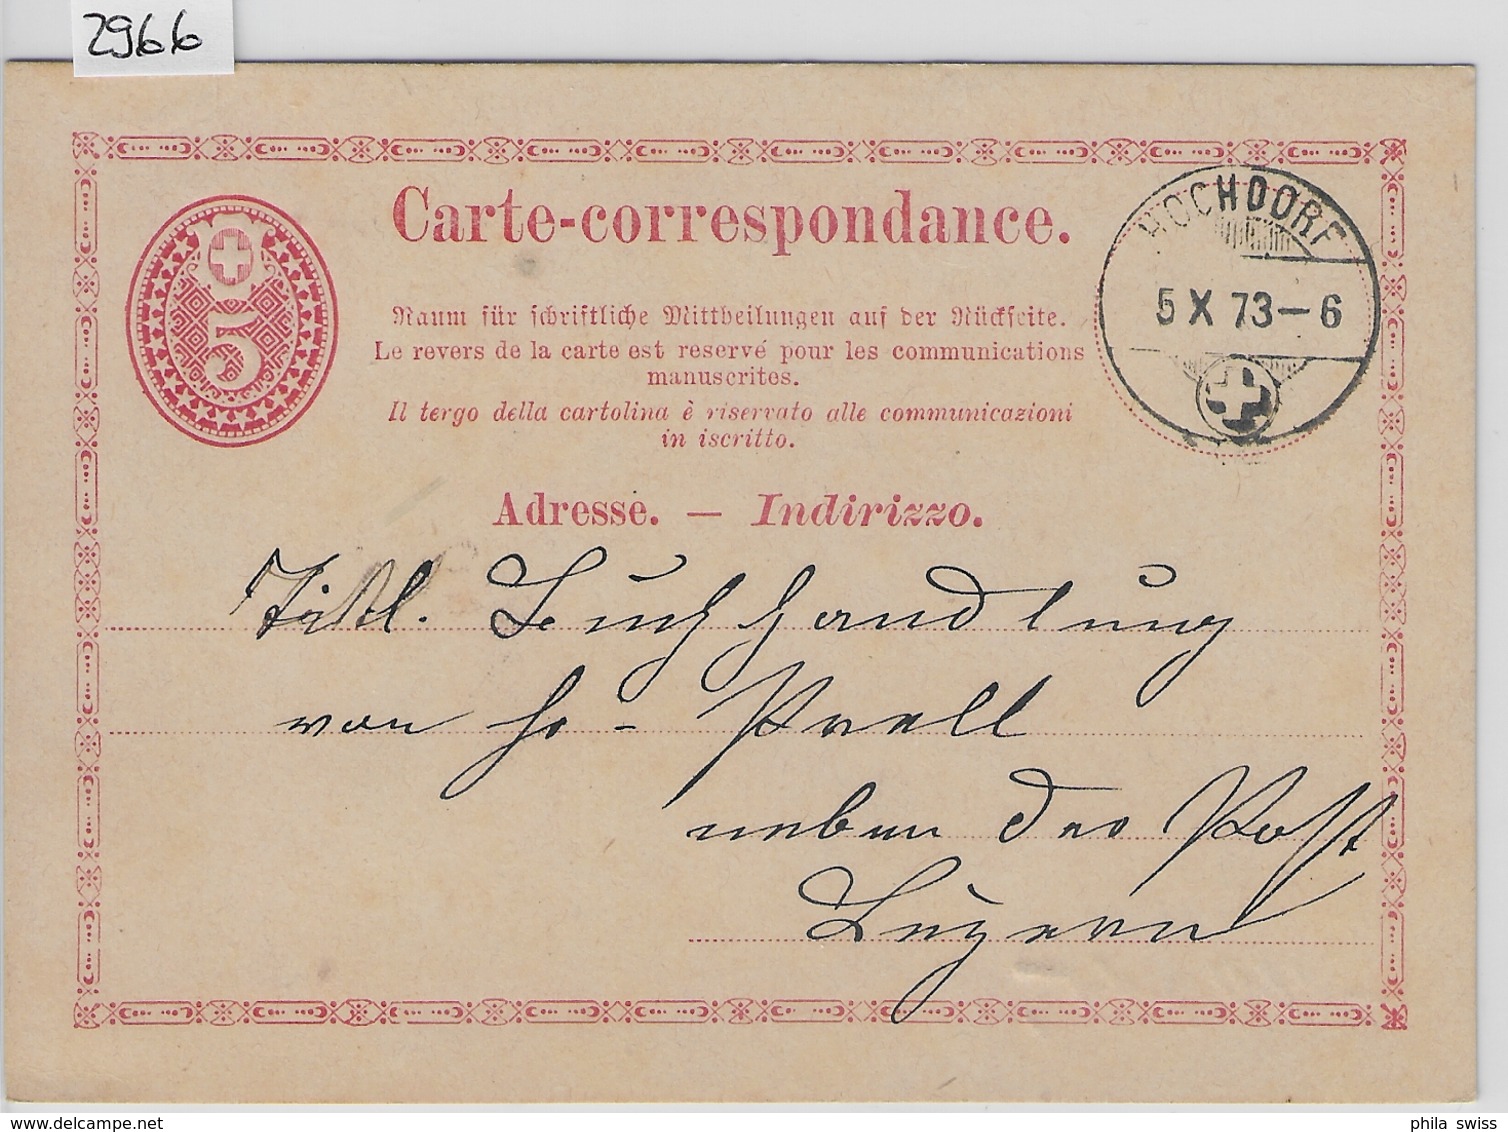 2966
Carte-correspondance.
HOCHDORF
5 X 73-6
5
Raum für schriftliche Mittheilungen auf der Rückseite.
Le revers de la carte est reservé pour les communications
manuscrites.
Il tergo della cartolina è riservato alle communicazioni
in iscritto.
Adresse. — Indirizzo.
Titl. Buchhandlung
von Prell
neben der Post
Luzern
phila swiss